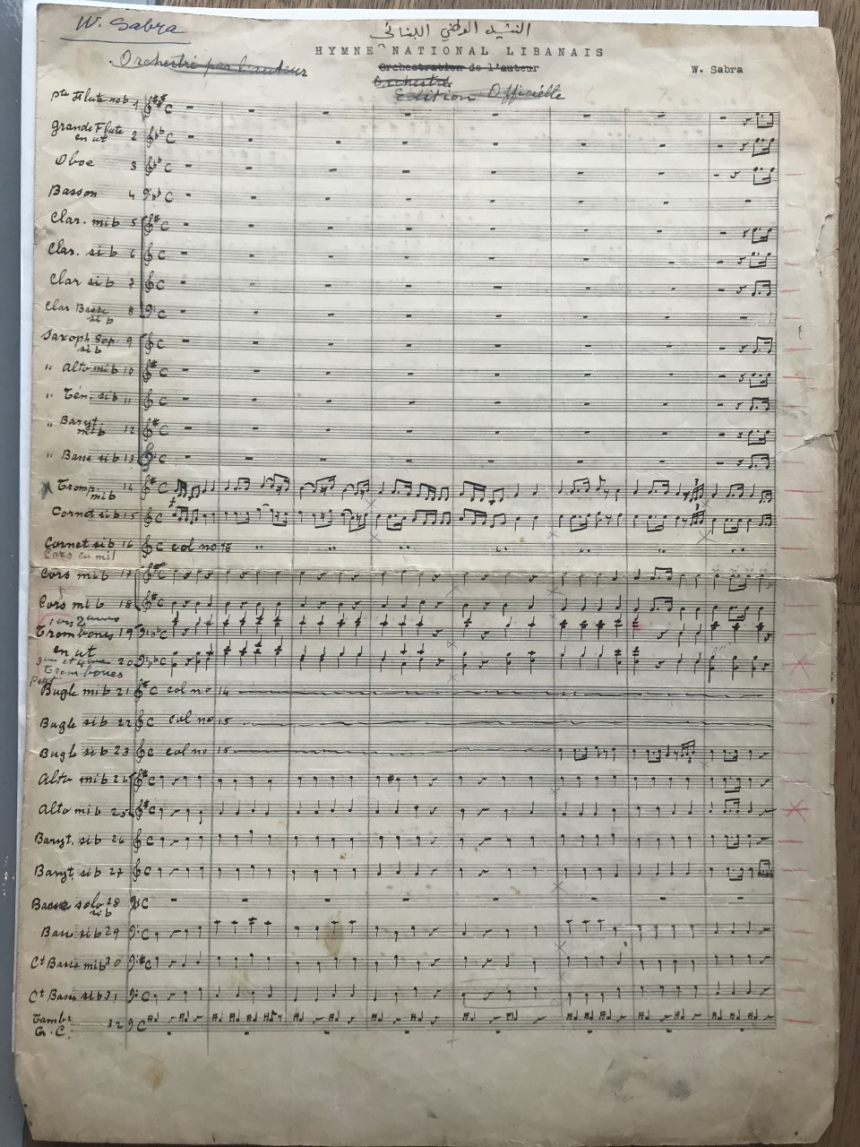 W. Sabra
النشيد الوطني اللبناني
HYMNE NATIONAL LIBANAIS
Orchestré par l'auteur
Orchestration de l'auteur
W. Sabra
Orchestré
Edition Officielle
pte Flute réb 1
Grande Flute 2
en ut
Oboe 3
Basson 4
Clar. mib 5
Clar. sib 6
Clar sib 7
Clar Basse 8
sib
Saxoph Sop. 9
sib
" Alto mib 10
" Tén. sib 11
" Baryt. 12
mib
" Basse sib 13
Tromp. 14
mib
Cornet sib 15
Cornet sib 16 col no 15
Cors en mi
Cors mib 17
Cors mib 18
Trombones 19
en ut
3me et 4me 20
Trombones
Petit
Bugle mib 21 col no 14
Bugle sib 22 col no 15
Bugl sib 23 col no 15
Alto mib 24
Alto mib 25
Baryt. sib 26
Baryt. sib 27
Basse solo 28
sib
Bass sib 29
Ct Basse mib 30
Ct Basse sib 31
Tamb: 32
Gr. C.